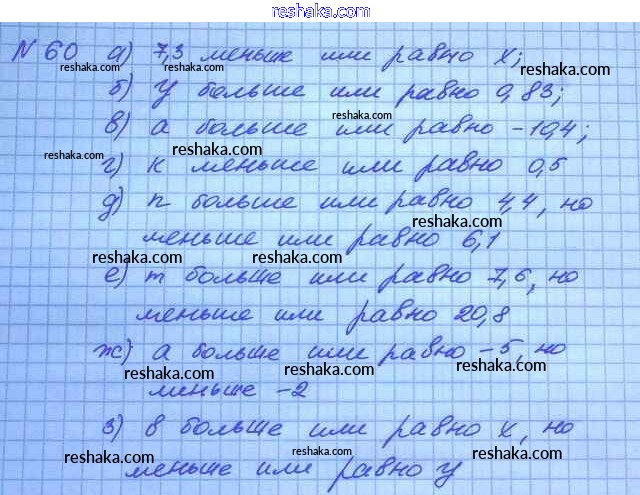 reshaka.com
N 60 а) 7,3 меньше или равно x;
reshaka.com reshaka.com reshaka.com
б) y больше или равно 0,83;
reshaka.com reshaka.com
в) a больше или равно -10,4;
reshaka.com reshaka.com
г) к меньше или равно 0,5
reshaka.com
д) n больше или равно 4,4, но
reshaka.com
меньше или равно 6,1
reshaka.com reshaka.com
е) m больше или равно 7,6, но
reshaka.com
меньше или равно 20,8
reshaka.com
ж) a больше или равно -5, но
reshaka.com reshaka.com
меньше -2
з) в больше или равно x, но
reshaka.com reshaka.com reshaka.com
меньше или равно y
reshaka.com